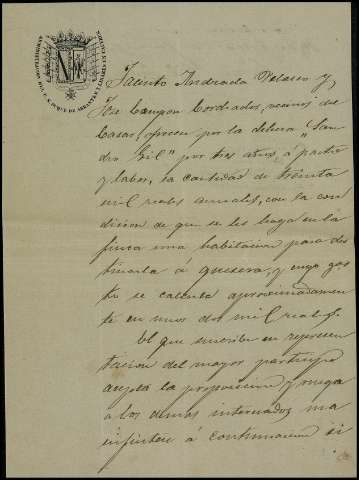 ADMINISTRACION DEL E. S. DUQUE DE ABRANTES Y LINARES EN CACERES
Jacinto Andrada Velasco y,
José Campon Cordiados, vecinos de
Casas, ofrecen por la dehesa "San-
dro Gil" por tres años, á pasto
y labor, la cantidad de treinta
mil reales anuales, con la con
dicion de que se les haga en la
finca una habitacion para des
tinarla á quesera, y cuyo gas
to se calcula aproximadamen
te en unos dos mil reales.
El que suscribe en represen
tacion del mayor participe
acepta la proposicion y ruega
a los demas interesados ma
nifiesten á continuacion si